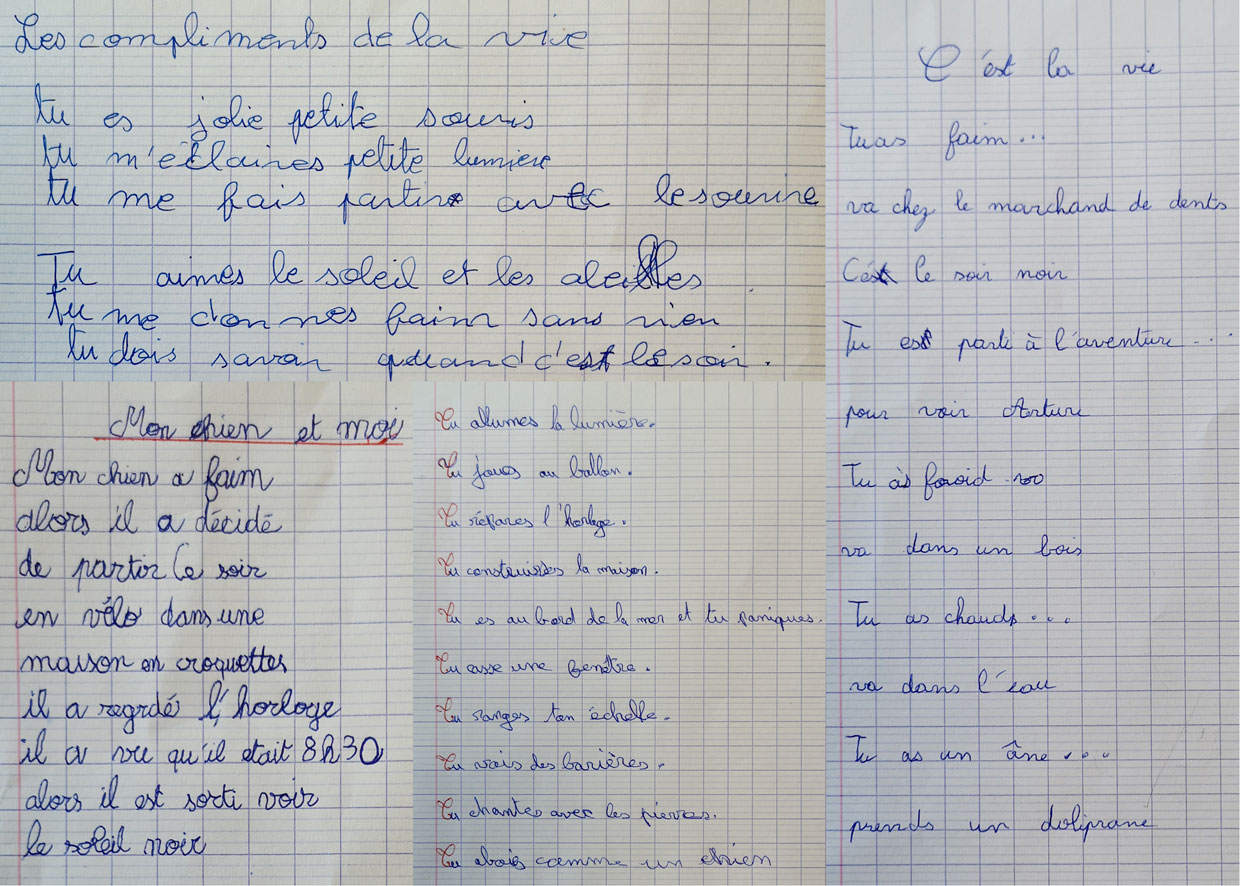 Les compliments de la vie
tu es jolie petite souris
tu m'éclaires petite lumiere
tu me fais partir avec le sourire
Tu aimes le soleil et les abeilles
tu me donnes faim sans rien
tu dois savoir quand c'est le soir.
Mon chien et moi
Mon chien a faim
alors il a décidé
de partir le soir
en vélo dans une
maison en croquettes
il a regrdé l'horloge
il a vu qu'il etait 8h30
alors il est sorti voir
le soleil noir
Tu allumes la lumière.
Tu joues au ballon.
Tu répares l'horloge.
Tu construises la maison.
Tu es au bord de la mer et tu paniques.
Tu casse une fenêtre.
Tu ranges ton échelle.
Tu vois des barières.
Tu chantes avec les pierres.
Tu abois comme un chien
C'est la vie
Tu as faim...
va chez le marchand de dents
C'est le soir noir
Tu es parti à l'aventure...
pour voir Arture
Tu as froid
va dans un bois
Tu as chauds...
va dans l'eau
Tu as un âne...
prends un doliprane